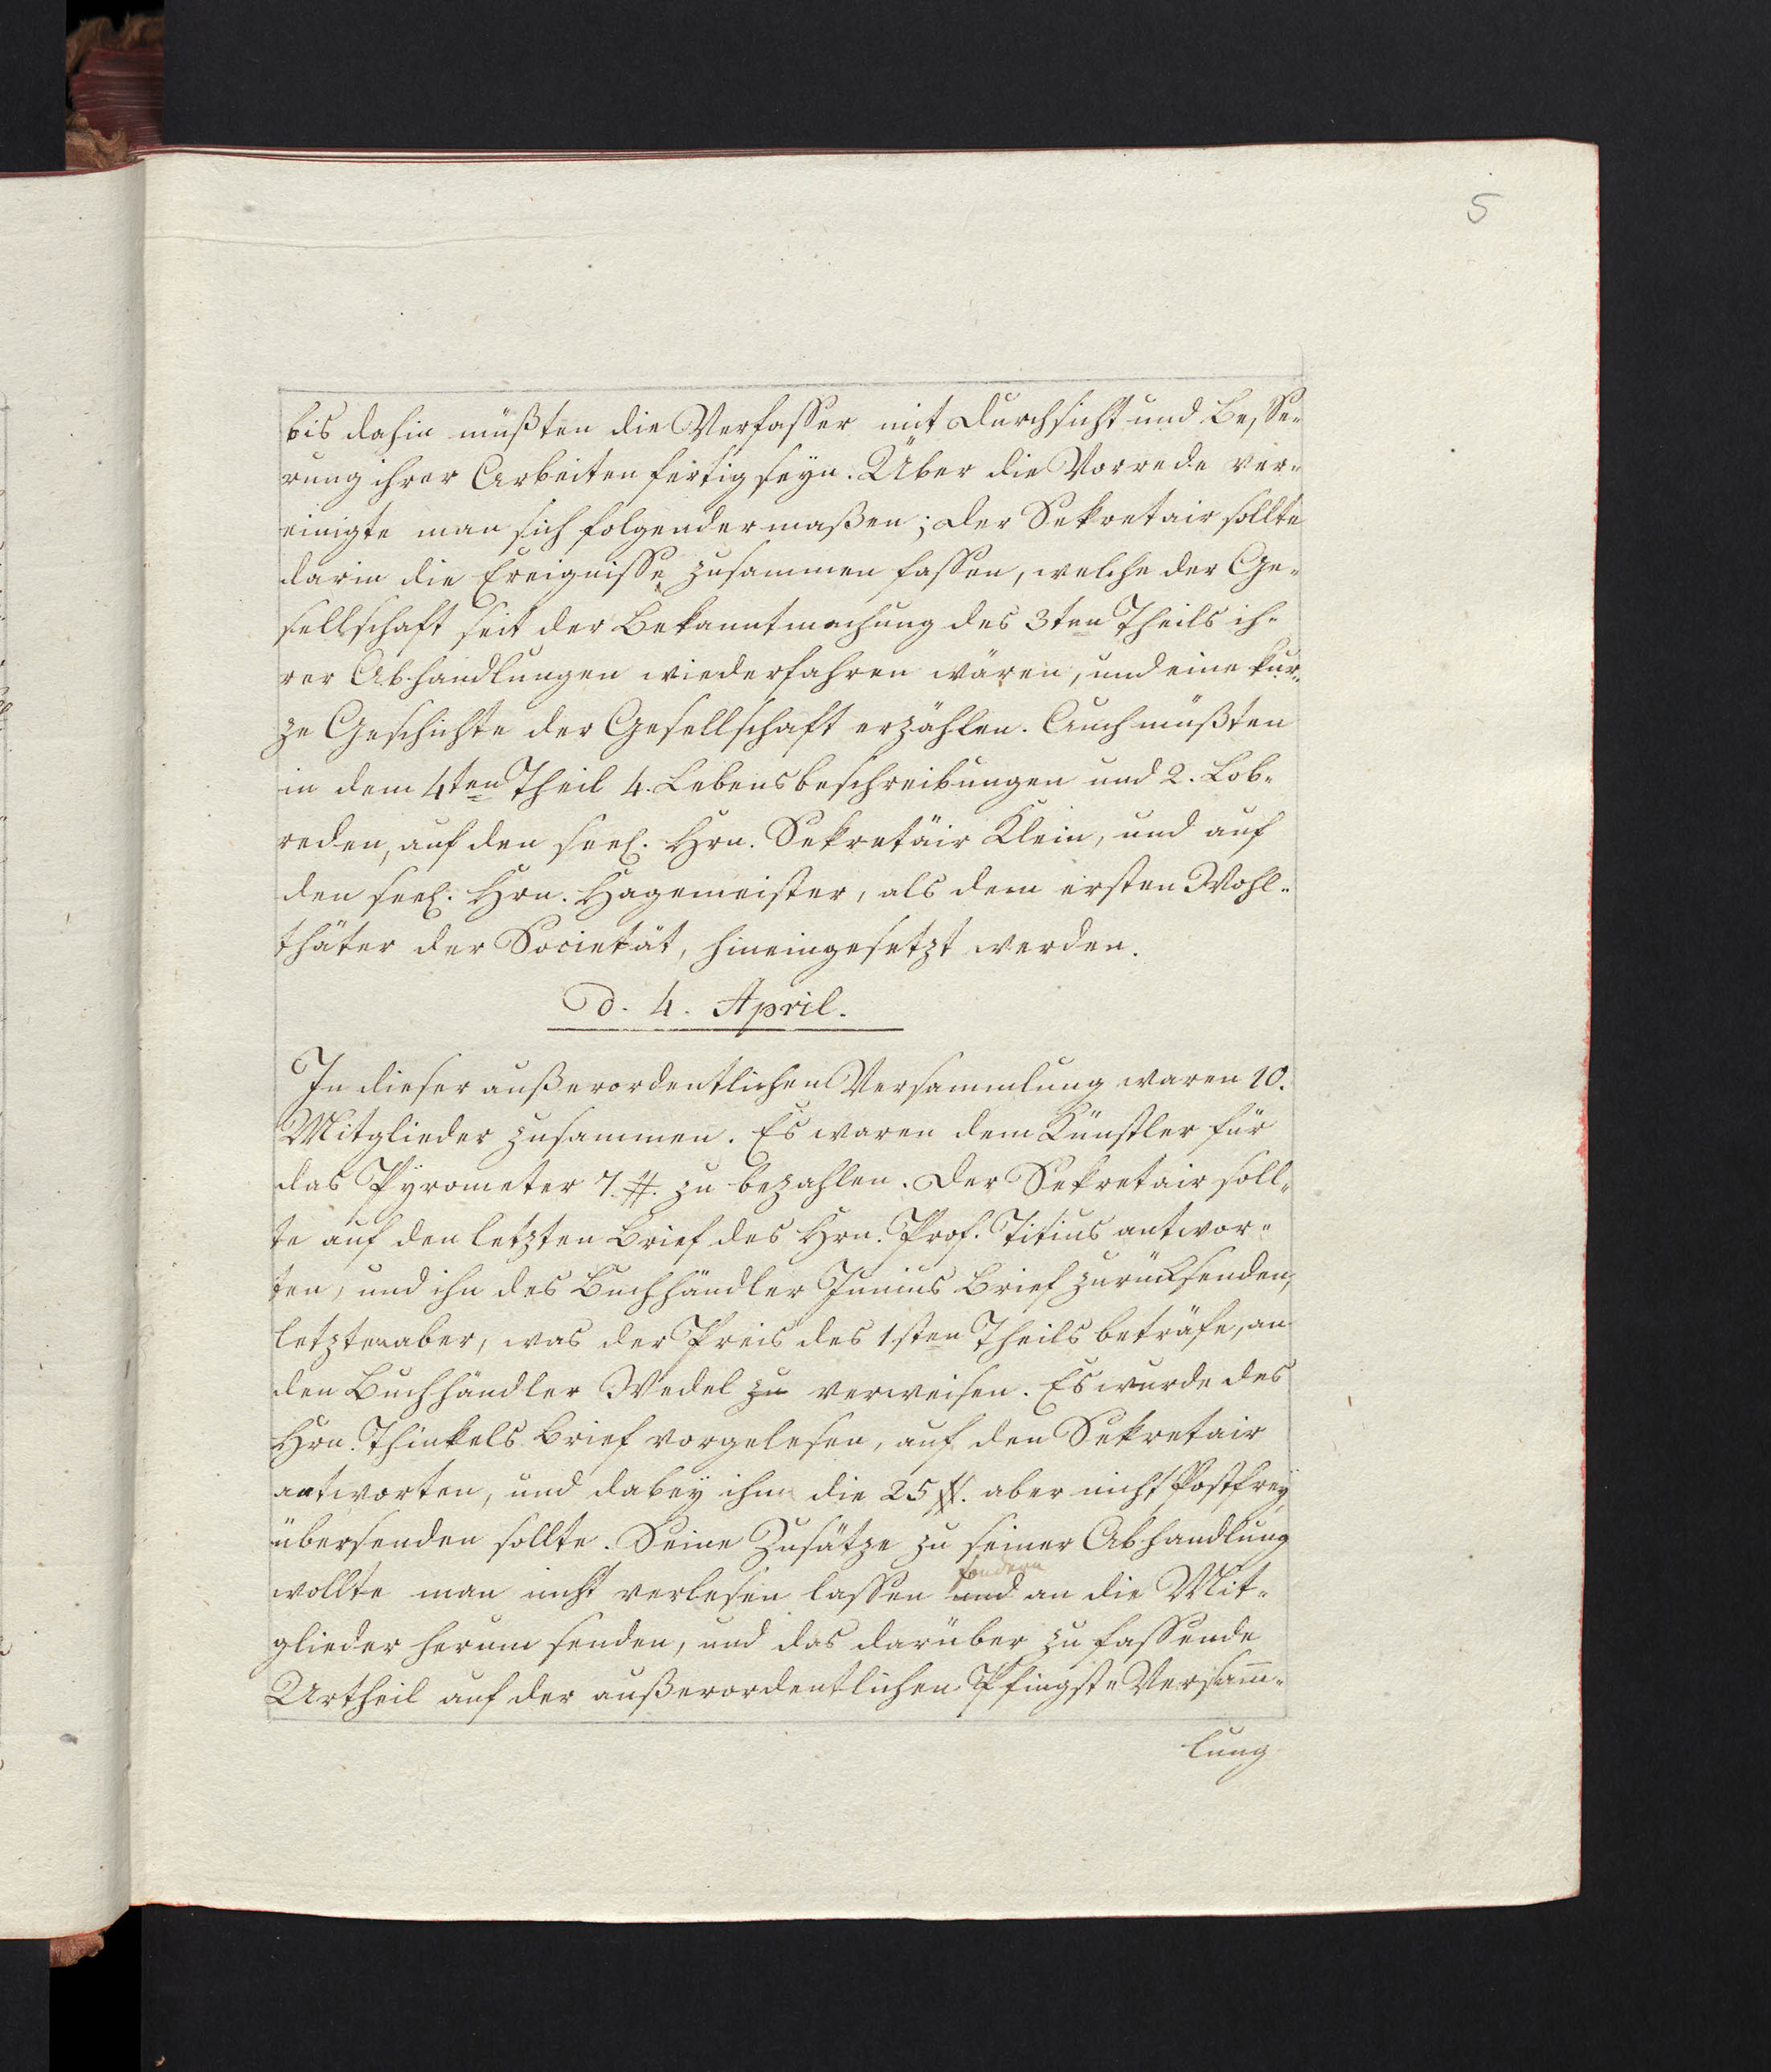 5
bis dahin müßten die Verfasser mit Durchsicht und Besse-
rung ihrer Arbeiten fertig seyn. Über die Vorrede ver-
einigte man sich folgendermaßen; der Sekretair sollte
darin die Ereignisse zusammen fassen, welche der Ge-
sellschaft seit der Bekanntmachung des 3ten Theils ih-
rer Abhandlungen wiederfahren wären, und eine kur-
ze Geschichte der Gesellschaft erzählen. Auch müßten
in dem 4ten Theil 4. Lebensbeschreibungen und 2. Lob-
reden, auf den seel. Hrn. Sekretäir Klein, und auf
den seel. Hrn. Hagemeister, als dem ersten Wohl-
thäter der Societät, hineingesetzt werden.
D. 4. April.
In dieser außerordentlichen Versammlung waren 10.
Mitglieder zusammen. Es waren dem Künstler für
das Pyrometer 7. #. zu bezahlen. Der Sekretair soll-
te auf den letzten Brief des Hrn. Prof. Titius antwor-
ten, und ihn des Buchhändler Junius Brief zurücksenden,
letztern aber, was der Preis des 1sten Theils beträfe, an
den Buchhändler Wedel zu verweisen. Es wurde des
Hrn. Thinkels Brief vorgelesen, auf den Sekretair
antworten, und dabey ihm die 25 #. aber nicht Postfrey
übersenden sollte. Seine Zusätze zu seiner Abhandlung
sondern
wollte man nicht verlesen lassen und an die Mit-
glieder herum senden, und das darüber zu fassende
Urtheil auf der außerordentlichen Pfingst-Versam̅-
lung